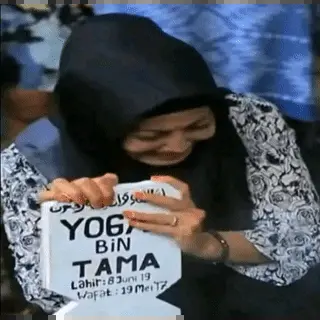 YOGA
BiN
TAMA
Lahir: 8 Juni 19
Wafat: 19 Mei 17